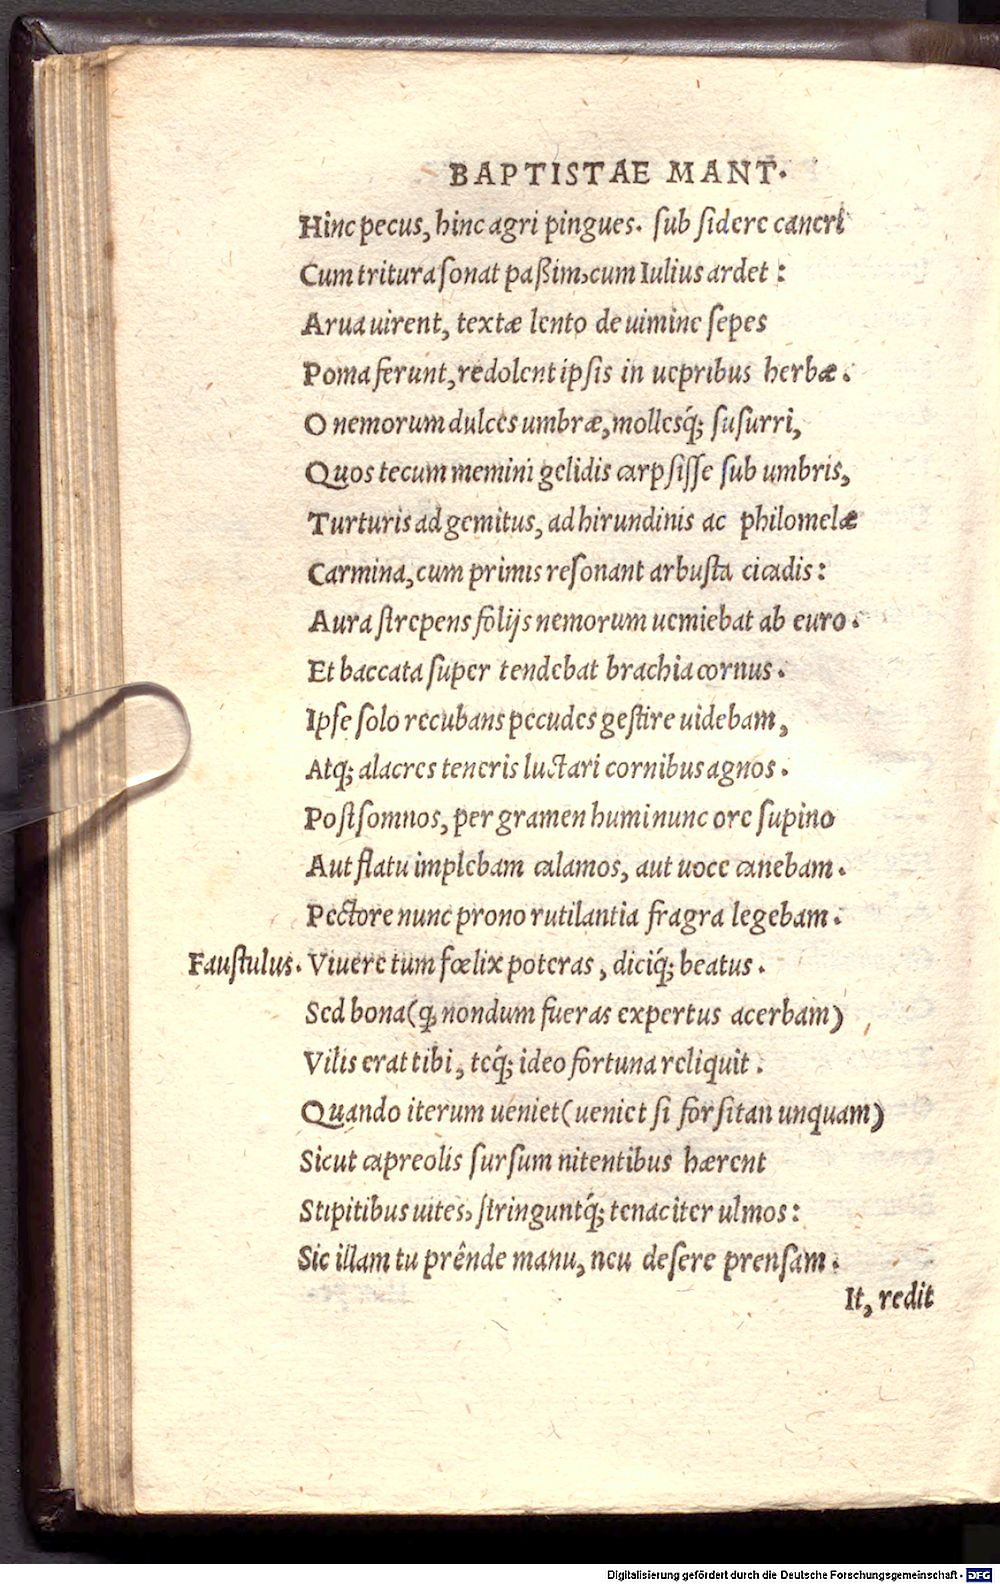 BAPTISTAE MANT.
Hinc pecus, hinc agri pingues. ſub ſidere cancri
Cum tritura ſonat paßim, cum Iulius ardet :
Arua uirent, textæ lento de uimine ſepes
Poma ferunt, redolent ipſis in uepribus herbæ.
O nemorum dulces umbræ, molleſq́; ſuſurri,
Quos tecum memini gelidis carpſiſſe ſub umbris,
Turturis ad gemitus, ad hirundinis ac philomelæ
Carmina, cum primis reſonant arbuſta cicadis :
Aura ſtrepens folijs nemorum ueniebat ab euro.
Et baccata ſuper tendebat brachia cornus.
Ipſe ſolo recubans pecudes geſtire uidebam,
Atq; alacres teneris luctari cornibus agnos.
Poſt ſomnos, per gramen humi nunc ore ſupino
Aut flatu implebam calamos, aut uoce canebam.
Pectore nunc prono rutilantia fragra legebam.
Fauſtulus. Viuere tum fœlix poteras, diciq́; beatus.
Sed bona (ꝗ nondum fueras expertus acerbam)
Vilis erat tibi, teq́; ideo fortuna reliquit.
Quando iterum ueniet (ueniet ſi forſitan unquam)
Sicut capreolis ſurſum nitentibus hærent
Stipitibus uites, ſtringuntq́; tenaciter ulmos :
Sic illam tu prênde manu, neu deſere prenſam.
It, redit
Digitalisierung gefördert durch die Deutsche Forschungsgemeinschaft - DFG